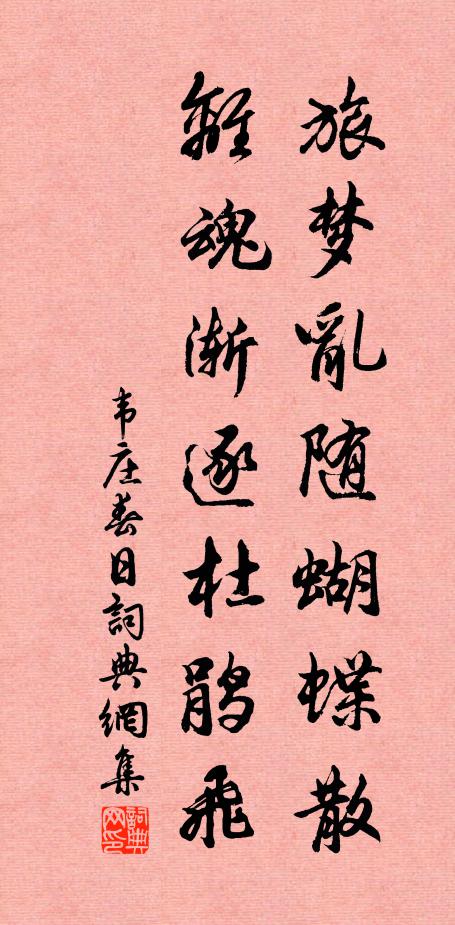 旅梦亂随蝴蝶散
離魂渐逐杜鹃飛
韦庄春日詞典網集
詞典
网印